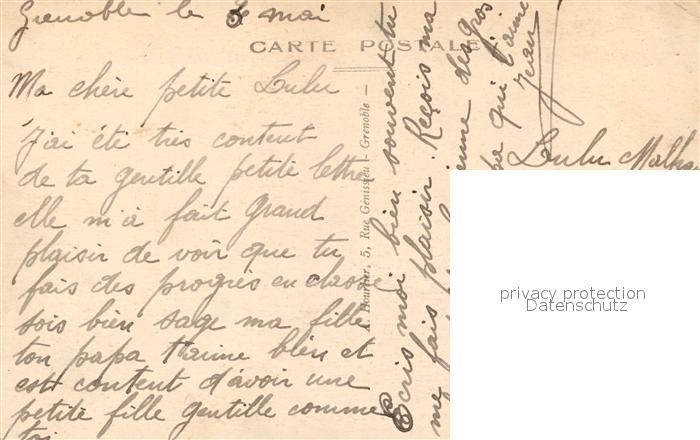 Grenoble le 3 mai
CARTE POSTALE
Ma chère petite Lulu
J'ai été très content
de ta gentille petite lettre
elle m'a fait grand
plaisir de voir que tu
fais des progrès en classe
sois bien sage ma fille
ton papa t'aime bien et
est content d'avoir une
petite fille gentille comme
toi
A. Hourlier, 5, Rue Génissieu - Grenoble -
Ecris moi bien souvent tu
me fais plaisir. Reçois ma
des gros
qui t'aime
Jean
Lulu
privacy protection
Datenschutz